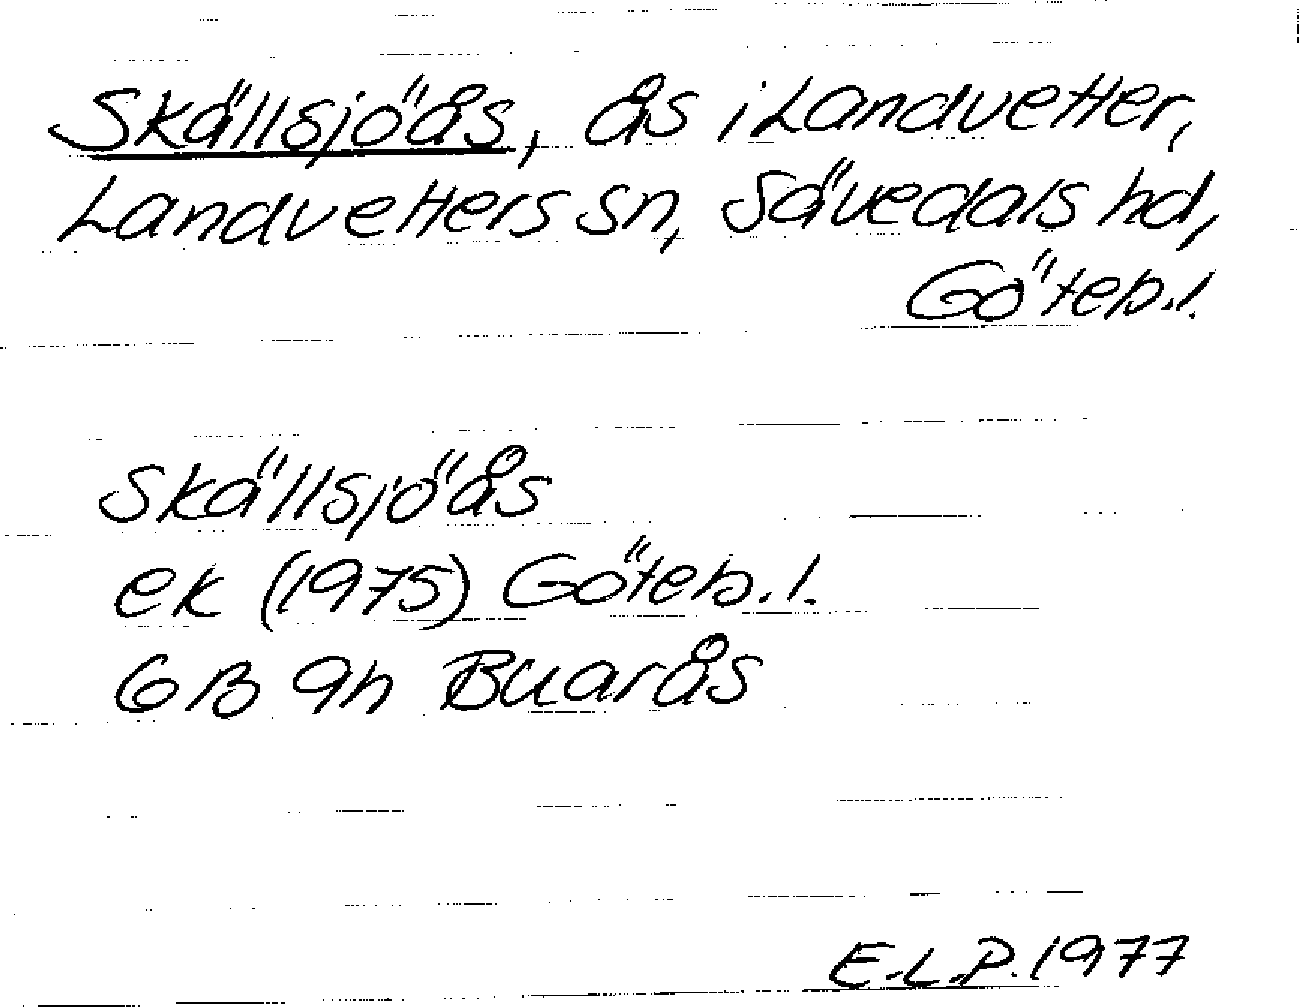 Skällsjöås, ås i Landvetter,
Landvetters sn, Sävedals hd,
Göteb.l.
Skällsjöås
ek (1975) Göteb.l.
6B 9h Buarås
E.L.P. 1977